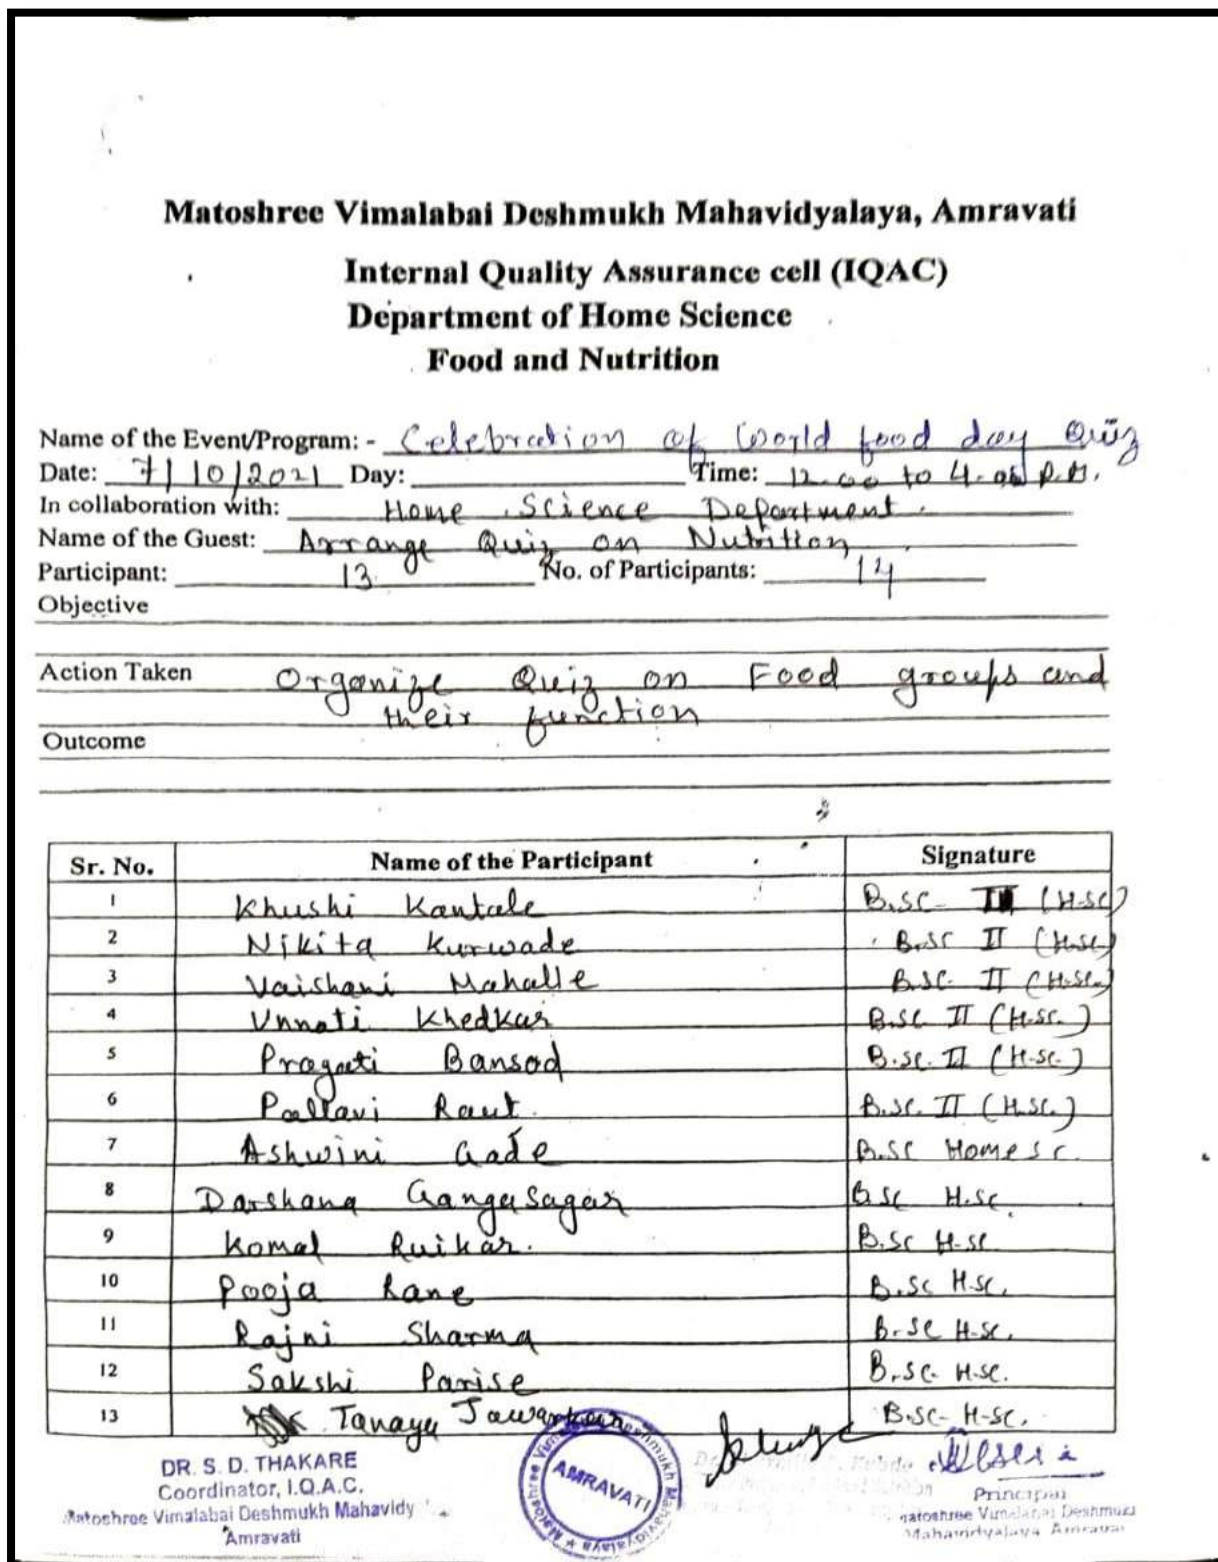 Matoshree Vimalabai Deshmukh Mahavidyalaya, Amravati
Internal Quality Assurance cell (IQAC)
Department of Home Science
Food and Nutrition
Name of the Event/Program: - Celebration of World food day Quiz
Date: 7/10/2021 Day: Time: 12.00 to 4.00 P.M.
In collaboration with: Home Science Department.
Name of the Guest: Arrange Quiz on Nutrition
Participant: 13 No. of Participants: 14
Objective
Action Taken Organize Quiz on Food groups and
their function
Outcome
Sr. No. Name of the Participant Signature
1 Khushi Kantale B.SC- II (H.SC)
2 Nikita Kurwade B.SC II (H.SC.)
3 Vaishani Mahalle B.SC. II (H.SC.)
4 Unnati Khedkar B.SC II (H.SC.)
5 Pragati Bansod B.SC. II (H.SC.)
6 Pallavi Raut. B.SC. II (H.SC.)
7 Ashwini Gade B.SC Home SC.
8 Darshana Gangasagar BSC H.SC
9 Komal Ruikar. B.SC H.SC
10 Pooja Rane B.SC H.SC.
11 Rajni Sharma B.SC H.SC.
12 Sakshi Parise B.SC. H.SC.
13 Tanaya Jawarkar B.SC- H-SC.
DR. S. D. THAKARE
Coordinator, I.Q.A.C.
Matoshree Vimalabai Deshmukh Mahavidy
Amravati
Matoshree Vimalabai Deshmukh Mahavidyalaya
AMRAVATI
Principal
Matoshree Vimalabai Deshmukh
Mahavidyalaya Amravati